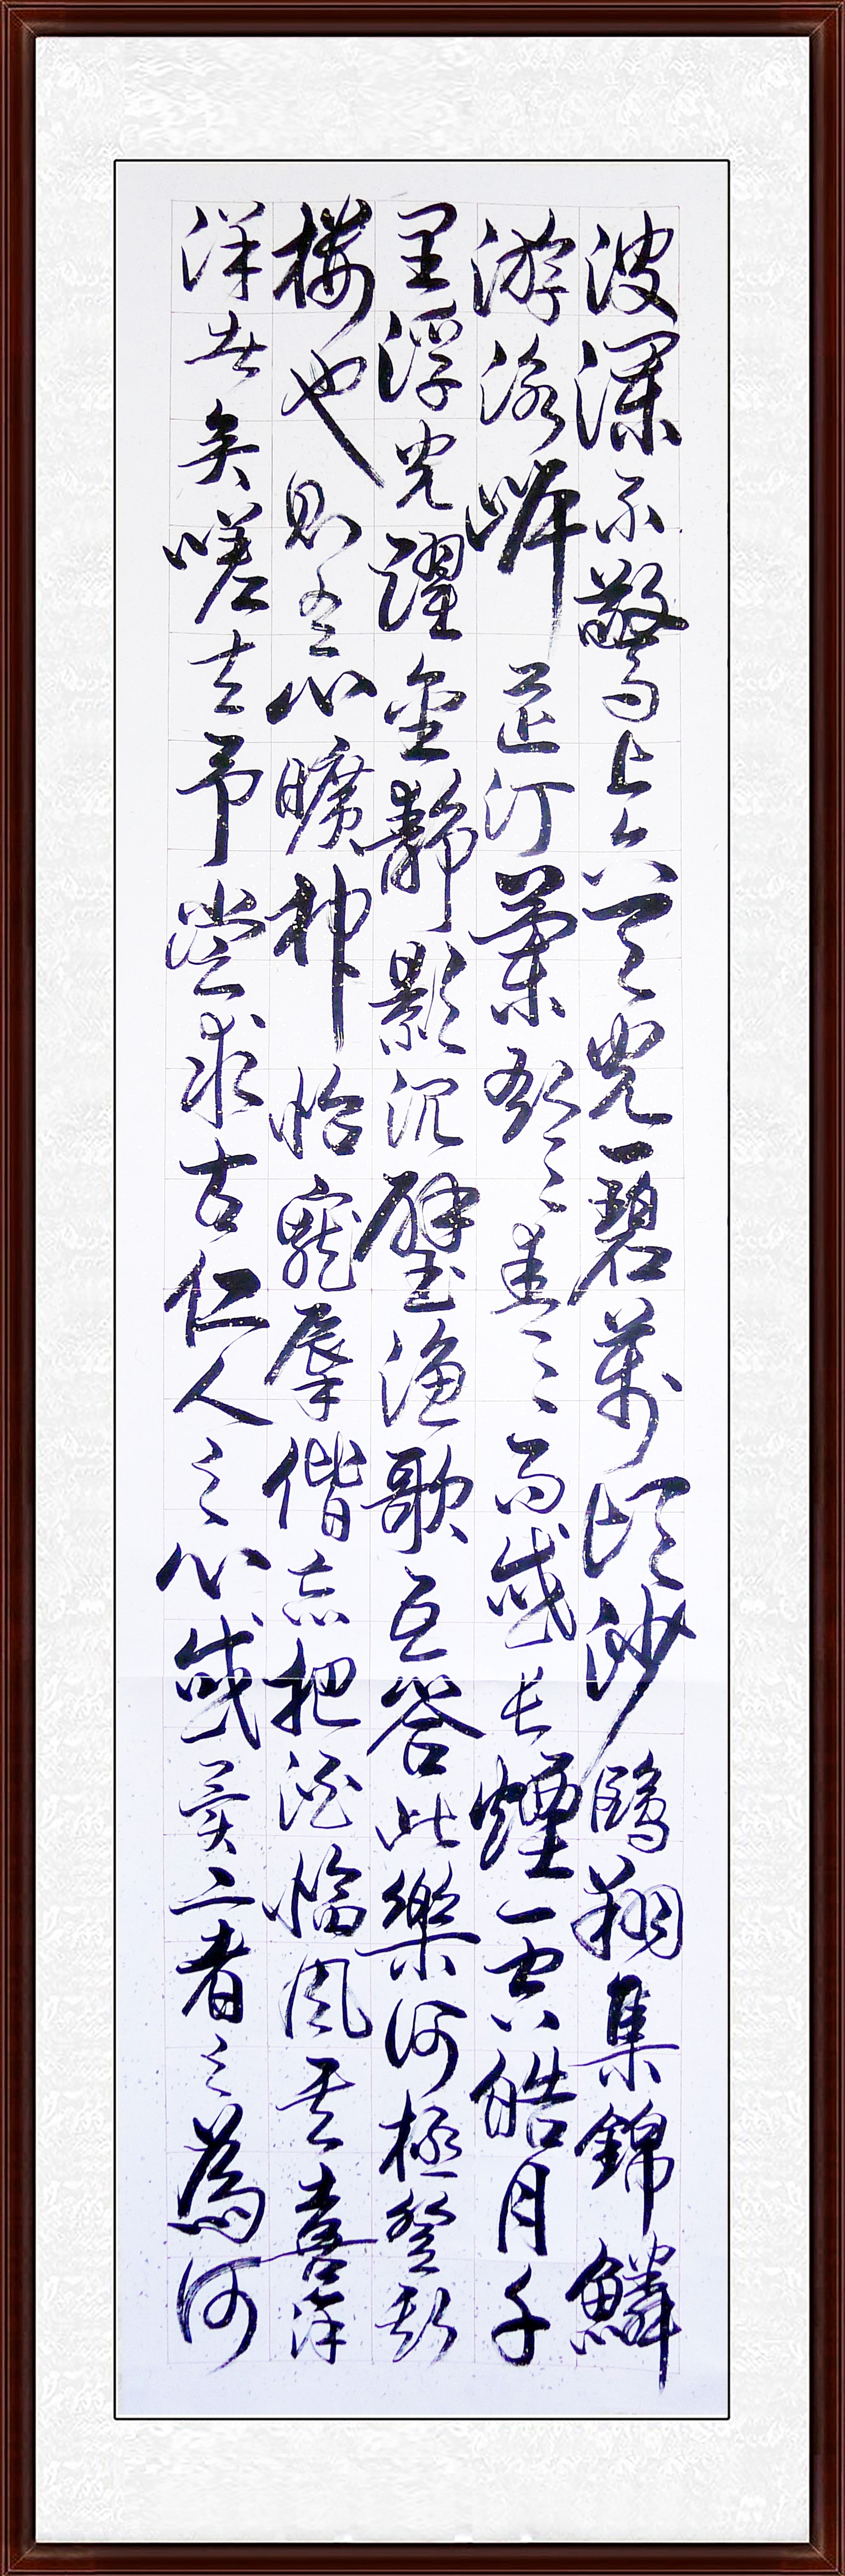 波瀾不驚上下天光一碧萬頃沙鷗翔集錦鱗
游泳岸芷汀蘭郁々青々而或長煙一空皓月千
里浮光躍金靜影沉璧漁歌互答此樂何極登斯
樓也則有心曠神怡寵辱偕忘把酒臨風其喜洋
洋者矣嗟夫予嘗求古仁人之心或異二者之為何